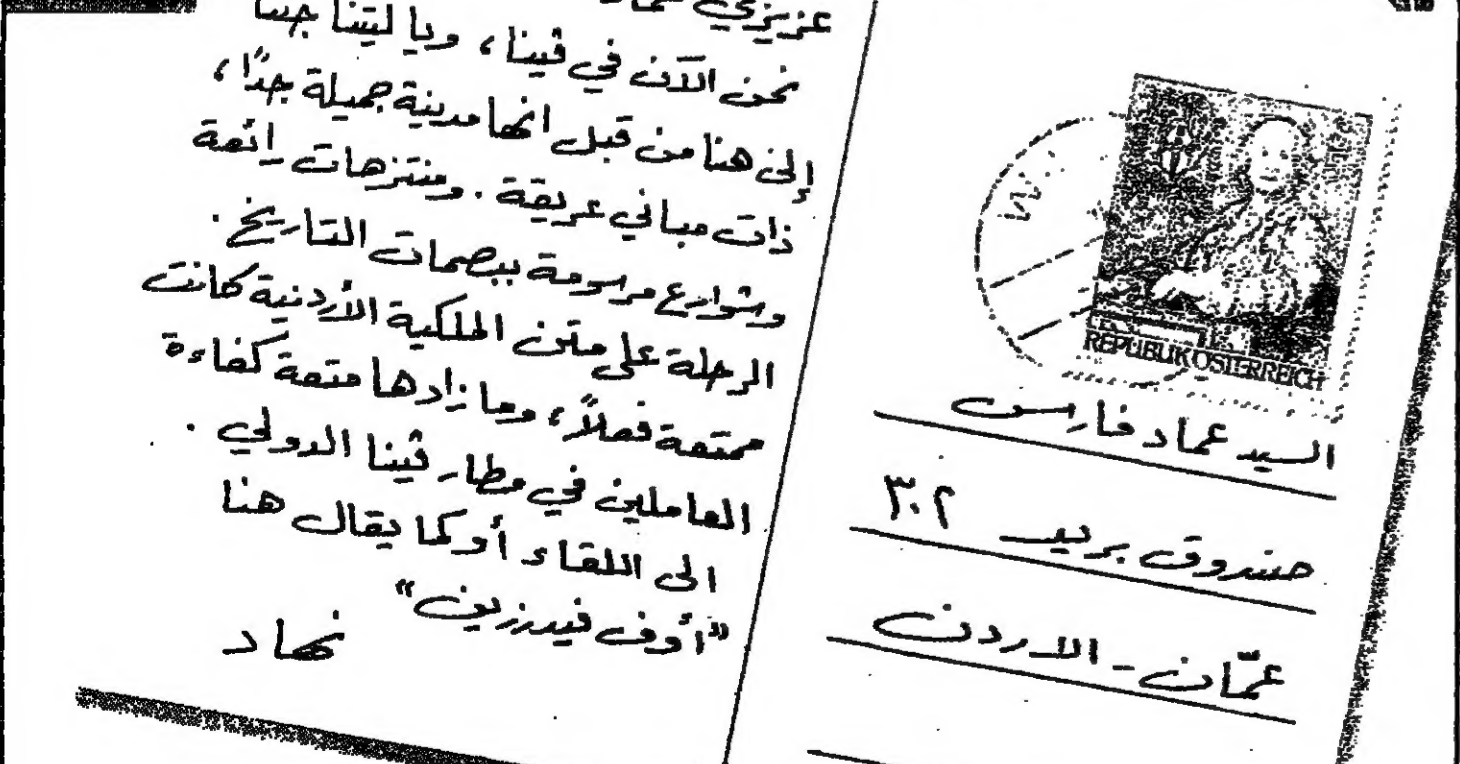 عزيزي عماد
نحن الآن في ڤينا، ويا ليتنا جئنا
إلى هنا من قبل انها مدينة جميلة جدًا،
ذات مباني عريقة. ومنتزهات رائعة
وشوارع مرسومة ببصمات التاريخ.
الرحلة على متن الملكية الأردنية كانت
ممتعة فعلاً، وما زادها متعة كفاءة
العاملين في مطار ڤينا الدولي.
الى اللقاء أو كما يقال هنا
"أوف فيدرزين"
نهاد
REPUBLIK ÖSTERREICH
السيد عماد فارس
صندوق بريد ٣٠٢
عمّان - الاردن